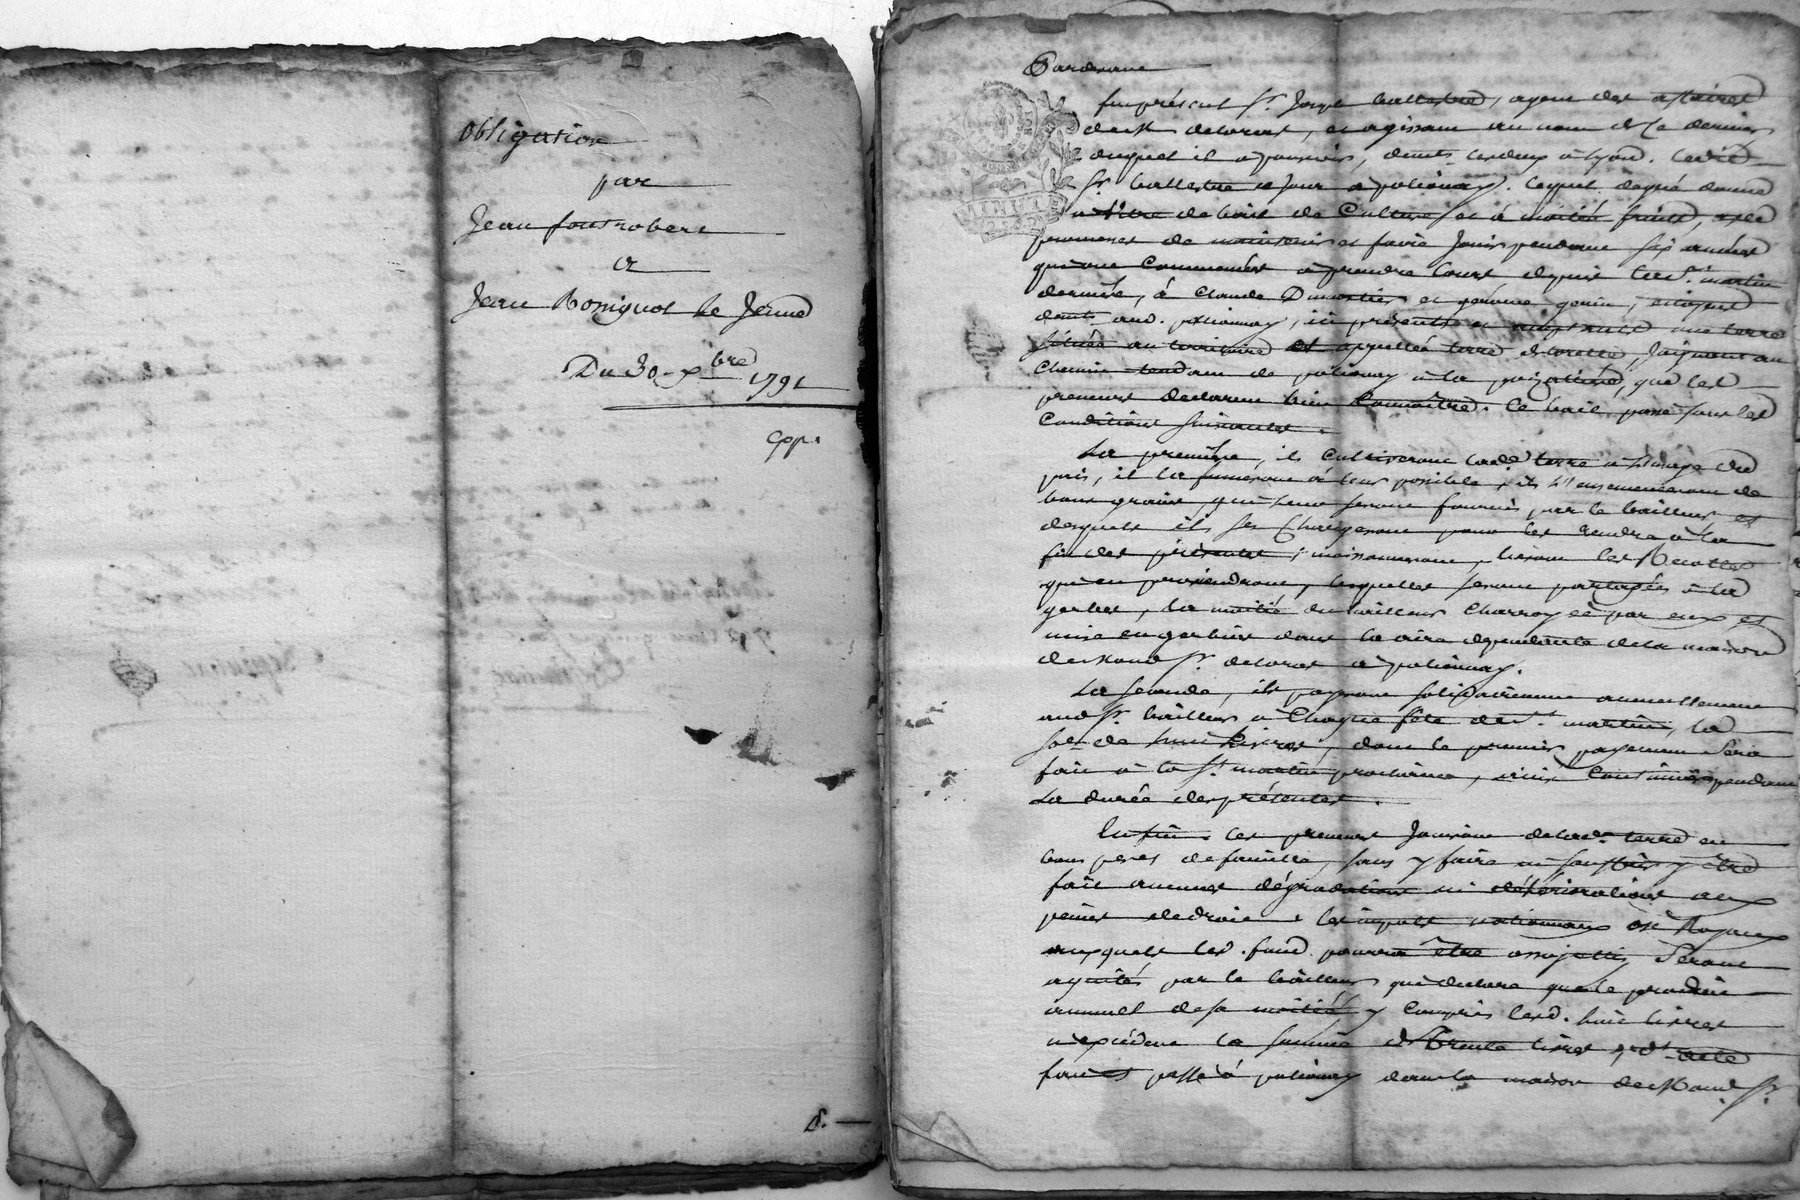 Obligation
par
Jean fontrobert
a
Jean Rossignol le Jeune
Du 30 Xbre 1791
Exp.
Pardevant
fut présent Sr. Joseph ballestre, agent des affaires
deloras, et agissant au nom de ce dernier
duquel il a pouvoir, demts. lesdeux à Lyon. ledit
Sr. ballestre à polionay. lequel degré donne
à titre de bail de Culture et à moitié fruits, avec
promesse de maintenir et faire jouir pendant six années
qui ont Commencées à prendre Cours depuis la St. martin
dernière, à Claude Dumortier et
demts. aud. polionnay, ici présents et acceptants une terre
située au territoire et appellée terre de joignant au
Chemin tendant de polionay à la que les
preneurs declarent bien Connoitre. Ce bail passé sous les
Conditions suivantes.
La première, ils Cultiveront lade. terre à l'usage du
païs, ils la fumeront à leur possible, ils l'ensemenceront de
bons grains, qui leur seront fournis par le bailleur et
desquels ils se Chargeront pour les rendre à la
fin des présentes; moissonneront, lieront les Recoltes
qui en proviendront, lesquelles seront partagées à la
gerbe, la moitié du bailleur Charroyée par eux et
mise en gerbier dans la aire dependante de la maison
dud. Sr. deloras à polionnay.
La seconde, ils payeront solidairement annuellement
aud. Sr. bailleur à Chaque fête de St. martin, la
so. de huit Livres, dont le premier payement sera
fait à la St. martin prochaine, ainsi Continuer pendant
La durée des présentes.
Enfin les preneurs Jouiront de lade. terre en
bons peres de famille, sans y faire ni souffrir y être
fait aucunes dégradations ni détériorations aux
peines de droit. les impots nationaux et Royaux
auxquels led. fond pourra être assujetti, seront
aquités par le bailleur qui declare que le produit
annuel de sa moitié y Compris lesd. huit livres
n'excèdent la somme de Trente livres,
fait et passé à polionay dans la maison dud. Sr.
8.